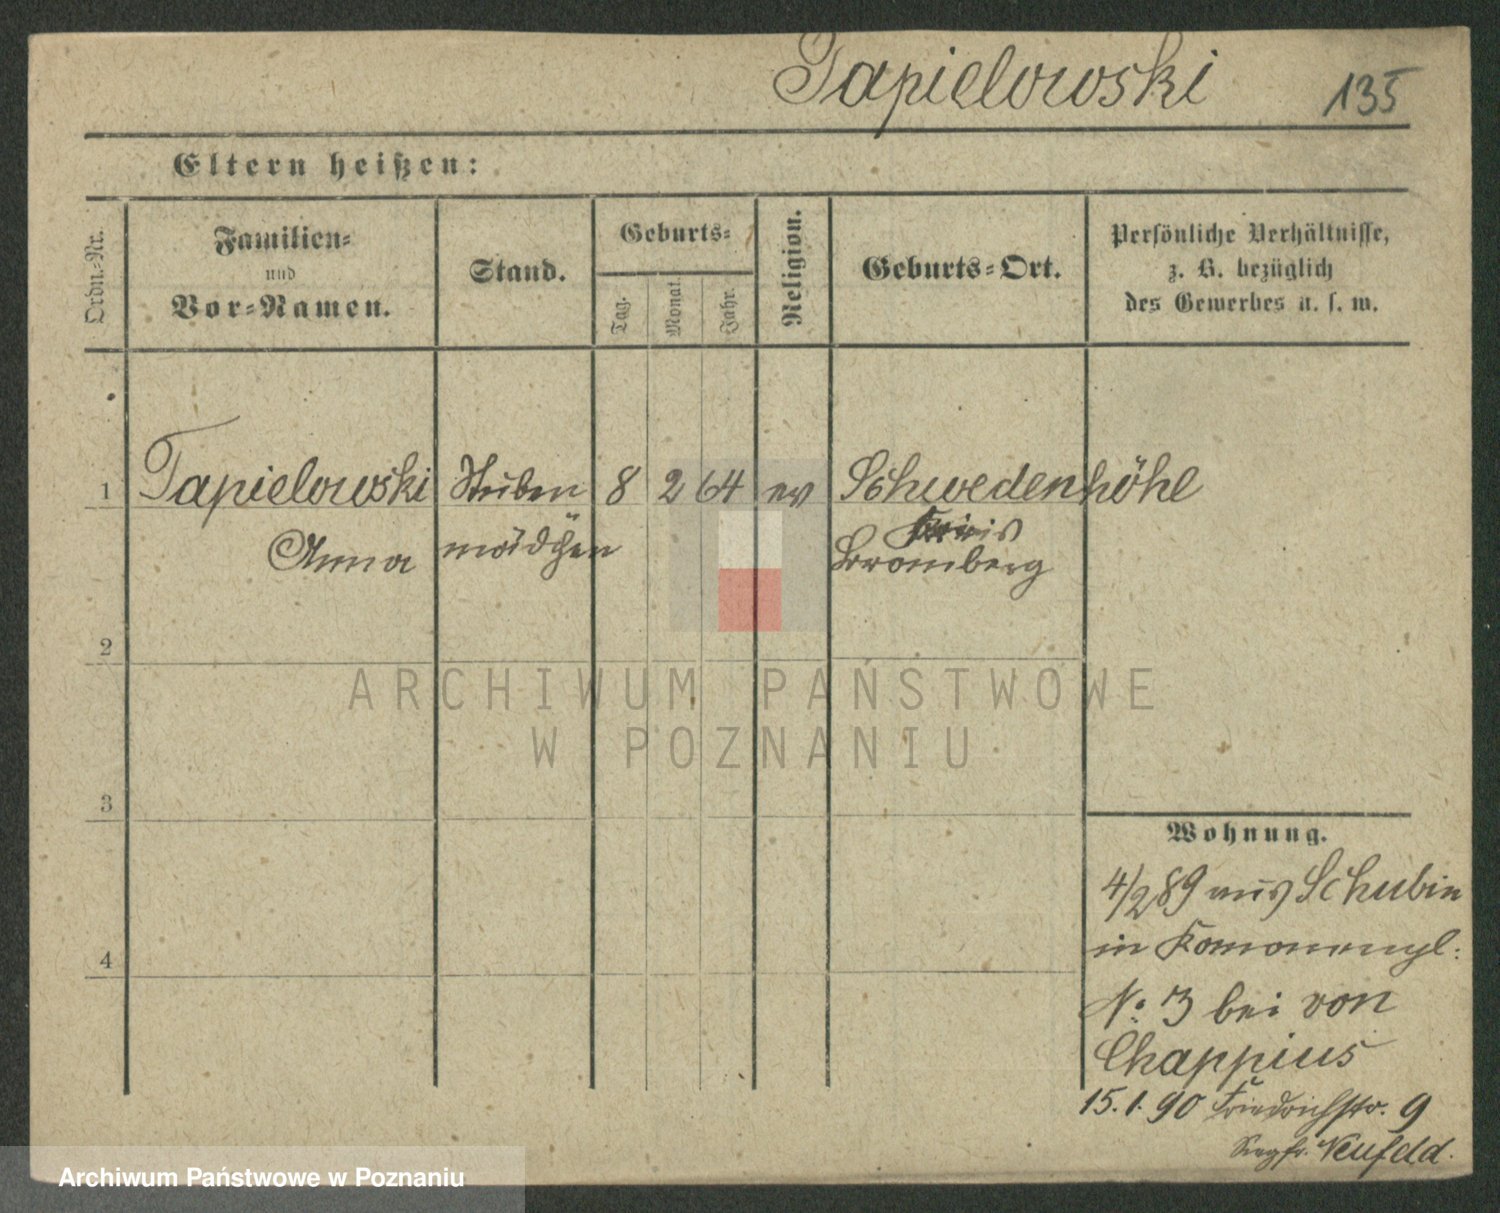 Tapielowski 135
Eltern heißen:
Ordn.-Nr.
Familien-
und
Vor-Namen.
Stand.
Geburts-
Tag.
Monat.
Jahr.
Religion.
Geburts-Ort.
Persönliche Verhältnisse,
z. B. bezüglich
des Gewerbes u. s. w.
1 Tapielowski Stuben 8 2 64 ev Schwedenhöhe
Anna mädchen Kreis
Bromberg
2
3
4
Wohnung.
4/2 89 aus Schubin
in
No. 3 bei von
Chappius
15.1.90 Friedrichstr. 9
Neufeld.
ARCHIWUM PAŃSTWOWE
W POZNANIU
Archiwum Państwowe w Poznaniu